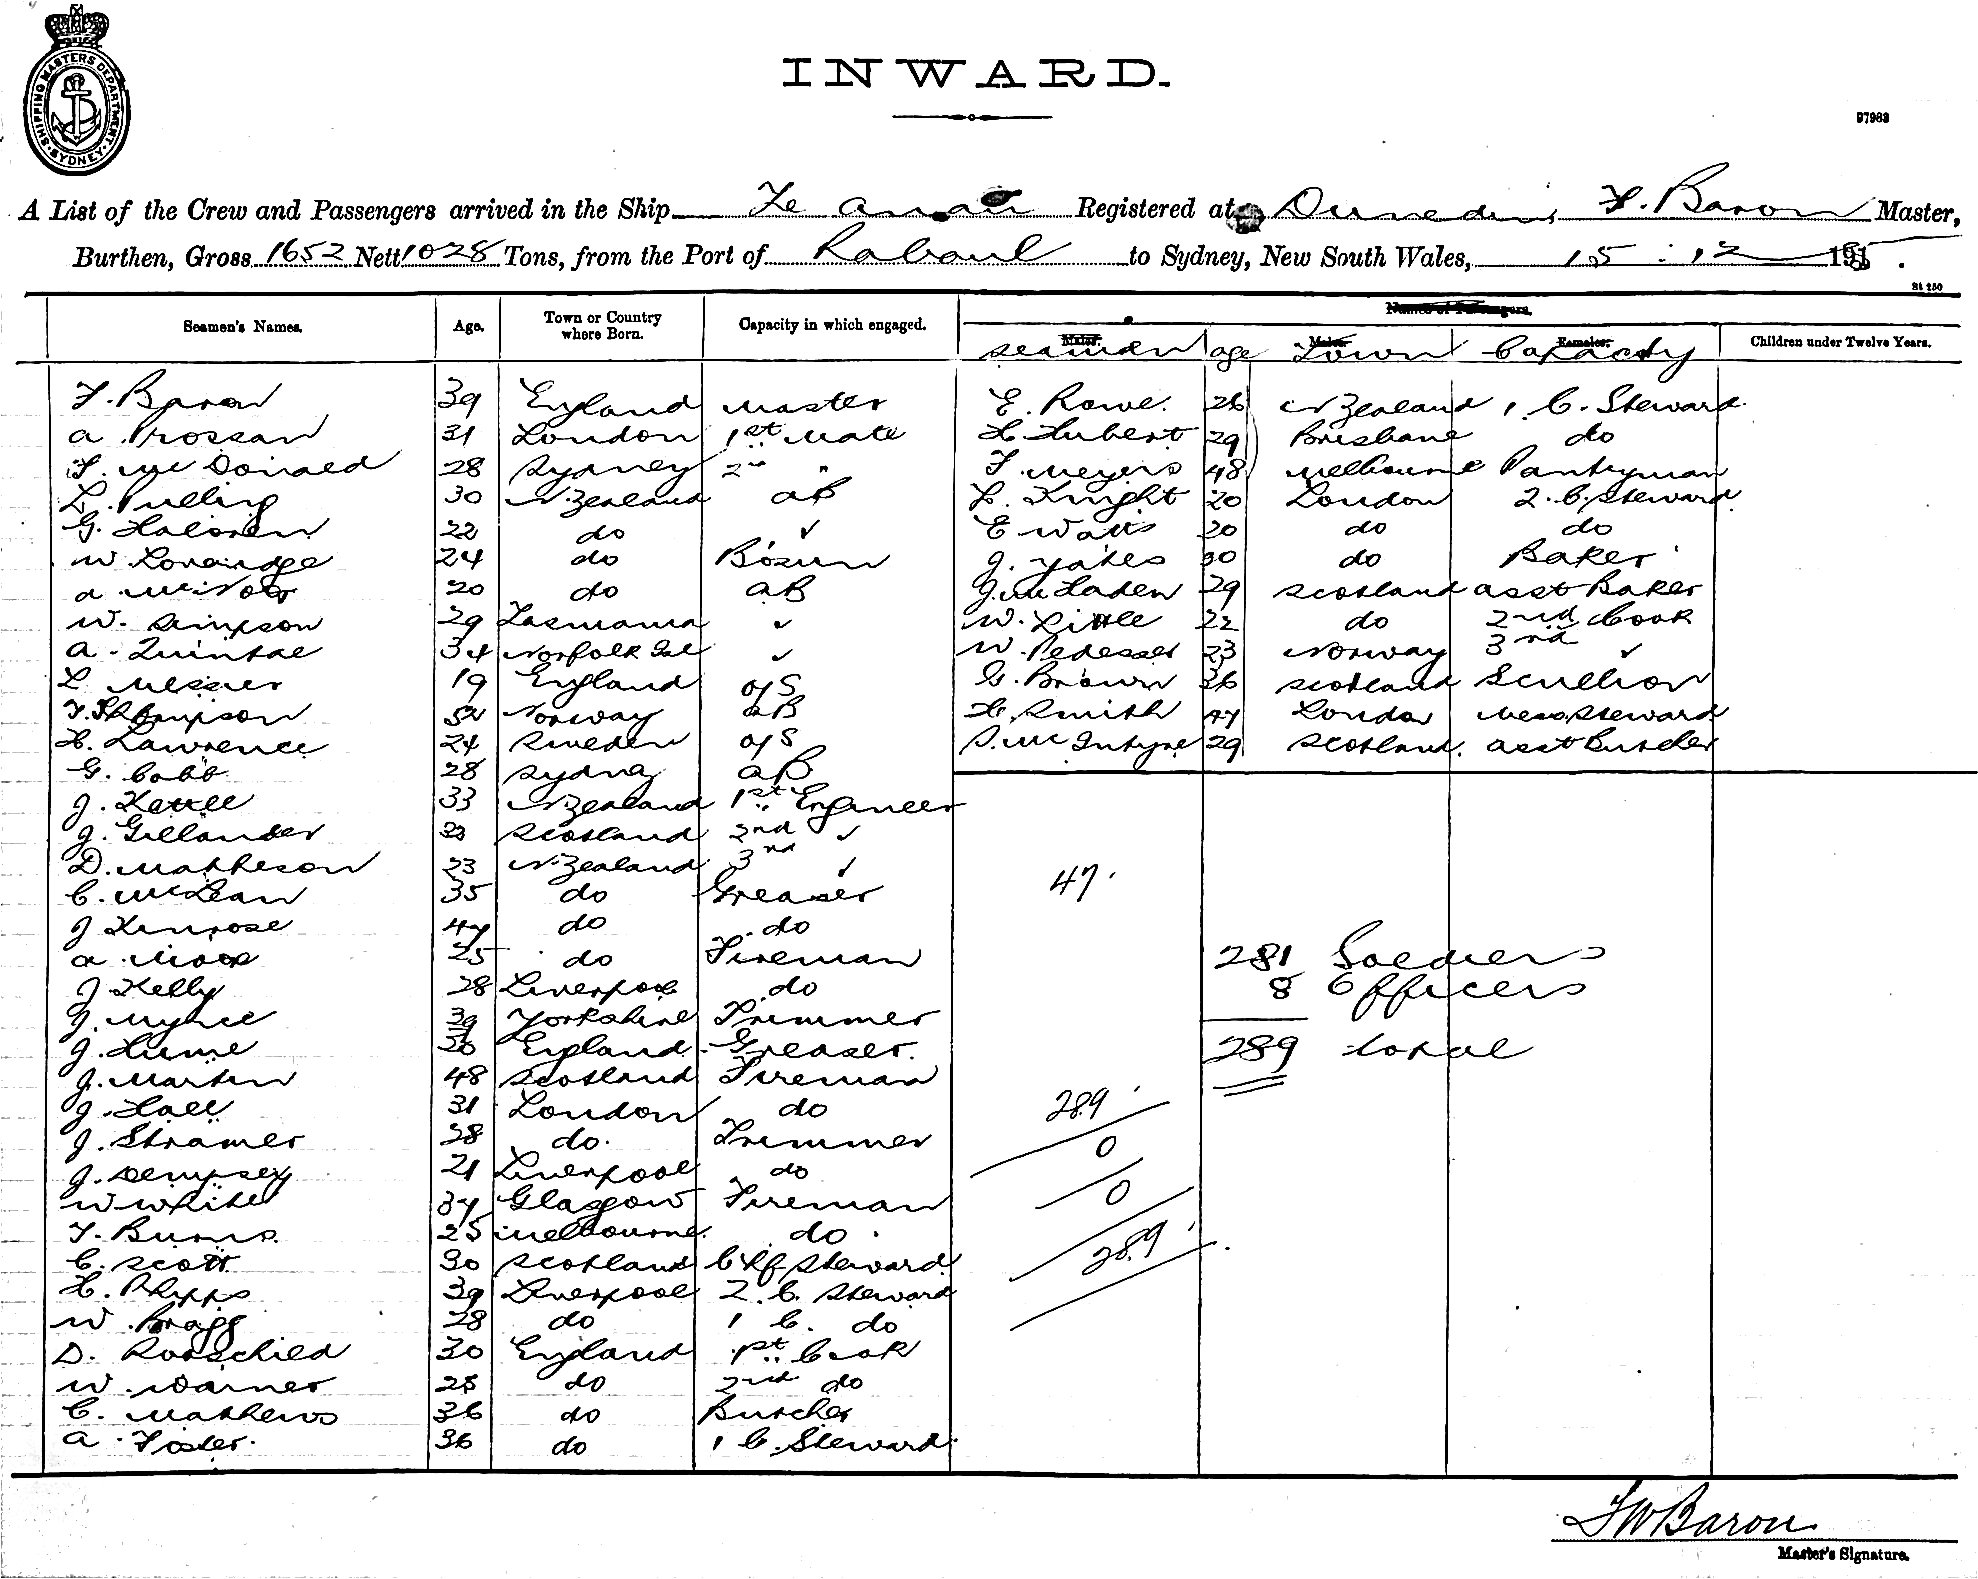 SHIPPING MASTERS DEPARTMENT. SYDNEY.
INWARD.
97983
A List of the Crew and Passengers arrived in the Ship Te Anau Registered at Dunedin F. Baron Master,
Burthen, Gross 1652 Nett 1028 Tons, from the Port of Rabaul to Sydney, New South Wales, 15 : 12 1915.
St 250
Names of Passengers.
Seamen's Names. Age. Town or Country where Born. Capacity in which engaged. Males. Males. Females. Children under Twelve Years.
seamen age Town Capacity
F. Baron 39 England Master E. Rowe. 26 N Zealand 1 C. Steward
a Prossan 31 London 1st Mate H Hubert 29 Brisbane do
F. McDonald 28 Sydney 2nd " F. Meyers 48 Melbourne Pantryman
L. Pulling 30 N. Zealand aB L. Knight 20 London 2. C. Steward
G. Haloren 22 do ✓ E Watts 20 do do
W Loveridge 24 do Bosun J. Yates 30 do Baker
a 20 do aB J. McFaden 29 Scotland asst Baker
W. Simpson 29 Tasmania ✓ W. Little 22 do 2nd Cook
a. Quintal 34 Norfolk Isl ✓ W. 23 Norway 3rd ✓
L Messer 19 England o/S G. Brown 36 Scotland Scullion
T. Thompson Norway aB H. Smith 47 London Mess Steward
H. Lawrence 24 Sweden o/S S. McIntyre 29 Scotland. asst Butcher
G. Cobb 28 Sydney aB
J. Kettle 33 N Zealand 1st Engineer
J. Gillander 33 Scotland 2nd ✓
D. Matheson 23 N. Zealand 3rd ✓
C. McLean 35 do Greaser 47.
J Kenrose 47 do do
a. 25 do Fireman 281 Soldiers
J Kelly 28 Liverpool do 8 Officers
J. 39 Yorkshire Trimmer
J. Hume England Greaser. 289 total
J. Martin 48 Scotland Fireman
J. Hall 31 London do 289
J. Stramer 28 do. Trimmer 0
J. Dempsey 21 Liverpool do
W White 37 Glasgow Fireman 0
T. Burns. 25 Melbourne. do
C. Scott 30 Scotland Chf Steward 289
H. Phipps 39 Liverpool 2. C. Steward
W. Bragg 28 do 1 C. do
D. Rotschild 30 England 1st Cook
W. Warner 28 do 2nd do
C. Mathews 36 do Butcher
a. Foster. 36 do 1 C. Steward
F W Baron
Master's Signature.